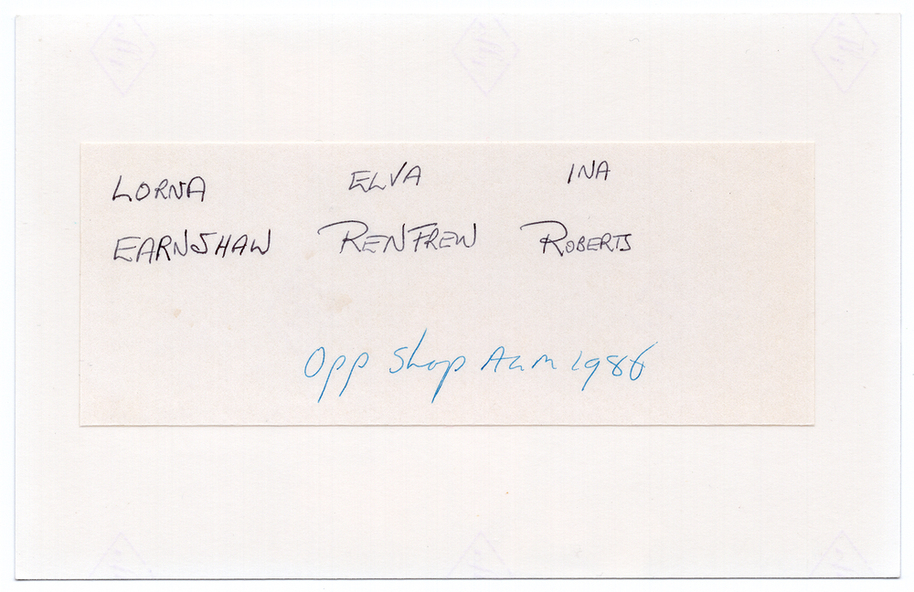 LORNA ELVA INA
EARNSHAW RENFREW ROBERTS
Opp Shop AGM 1986